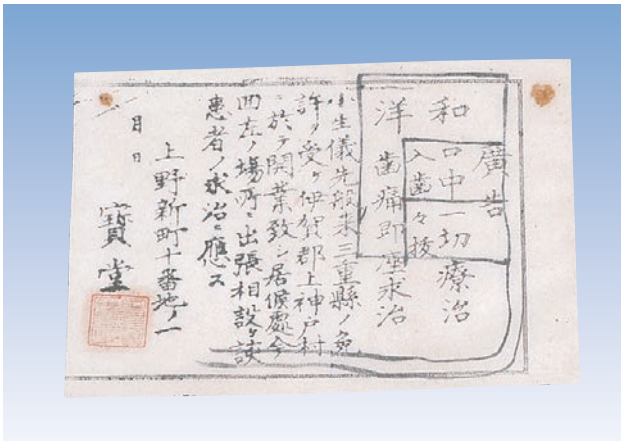 廣告
和 口中一切療治
入歯々抜
洋 歯痛即座求治
小生儀先般来三重縣ノ免
許ヲ受ケ伊賀郡上神戸村
ニ於テ開業致シ居候處今
回左ノ場所ニ出張相設ケ該
患者ノ求治ニ應ス
月 日
上野新町十番地ノ一
寶堂